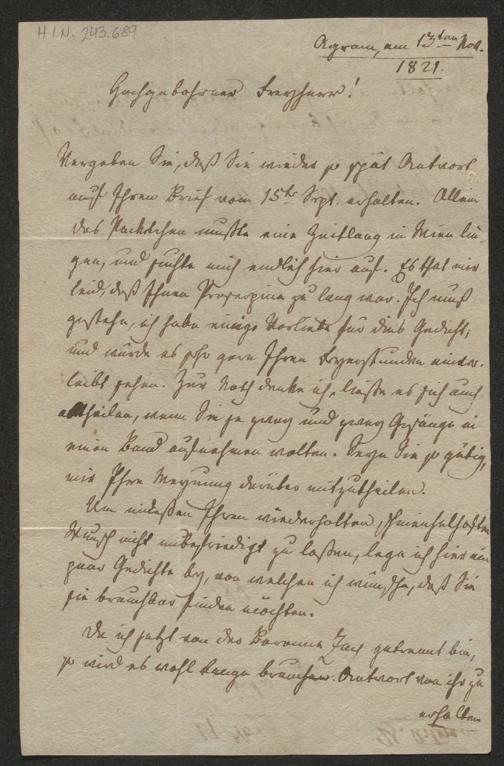 H.I.N. 243.689
Agram, am 13ten Nov.
1821.
Hochgebohrner Freyherr!
Vergeben Sie, daß Sie wieder so spät Antwort
auf Ihren Brief vom 15ten Sept. erhalten. Allein
das Packetchen mußte eine Zeitlang in Wien lie
gen, und suchte mich endlich hier auf. Es that mir
leid, daß Ihnen Proserpina zu lang war. Ich muß
gestehn, ich habe einige Vorliebe für dies Gedicht,
und würde es sehr gern Ihren Feyerstunden einver-
leibt sehen. Zur Noth denke ich, ließe es sich auch
theilen, wenn Sie je zwey und zwey Gesänge in
einen Band aufnehmen wollten. Seyn Sie so gütig,
mir Ihre Meynung darüber mitzutheilen.
Um indeßen Ihren wiederholten, schmeichelhaften
Wunsch nicht unbefriedigt zu laßen, lege ich hier ein
paar Gedichte bey, von welchen ich wünsche, daß Sie
sie brauchbar finden möchten.
Da ich jetzt von der Baronin Zay getrennt bin,
so wird es wohl lange brauchen, Antwort von ihr zu
erhalten